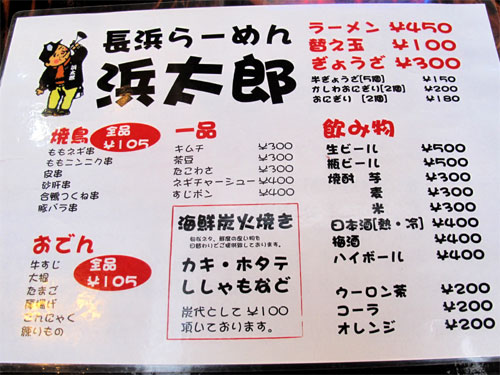 長浜らーめん
浜太郎
ラーメン ¥450
替え玉 ¥100
ぎょうざ ¥300
半ぎょうざ[5個] ¥150
かしわおにぎり[2個] ¥200
おにぎり [2個] ¥180
焼鳥 全品 ¥105
ももネギ串
ももニンニク串
皮串
砂肝串
合鴨つくね串
豚バラ串
おでん
全品 ¥105
牛すじ
大根
たまご
厚揚げ
こんにゃく
練りもの
一品
キムチ ¥300
茶豆 ¥300
たこわさ ¥300
ネギチャーシュー ¥400
すじポン ¥400
海鮮炭火焼き
旬なネタ、鮮度の良い物を
日替わりでご提供致しております。
カキ・ホタテ
ししゃもなど
炭代として ¥100
頂いております。
飲み物
生ビール ¥500
瓶ビール ¥500
焼酎 芋 ¥300
麦 ¥300
米 ¥300
日本酒[熱・冷] ¥400
梅酒 ¥400
ハイボール ¥400
ウーロン茶 ¥200
コーラ ¥200
オレンジ ¥200